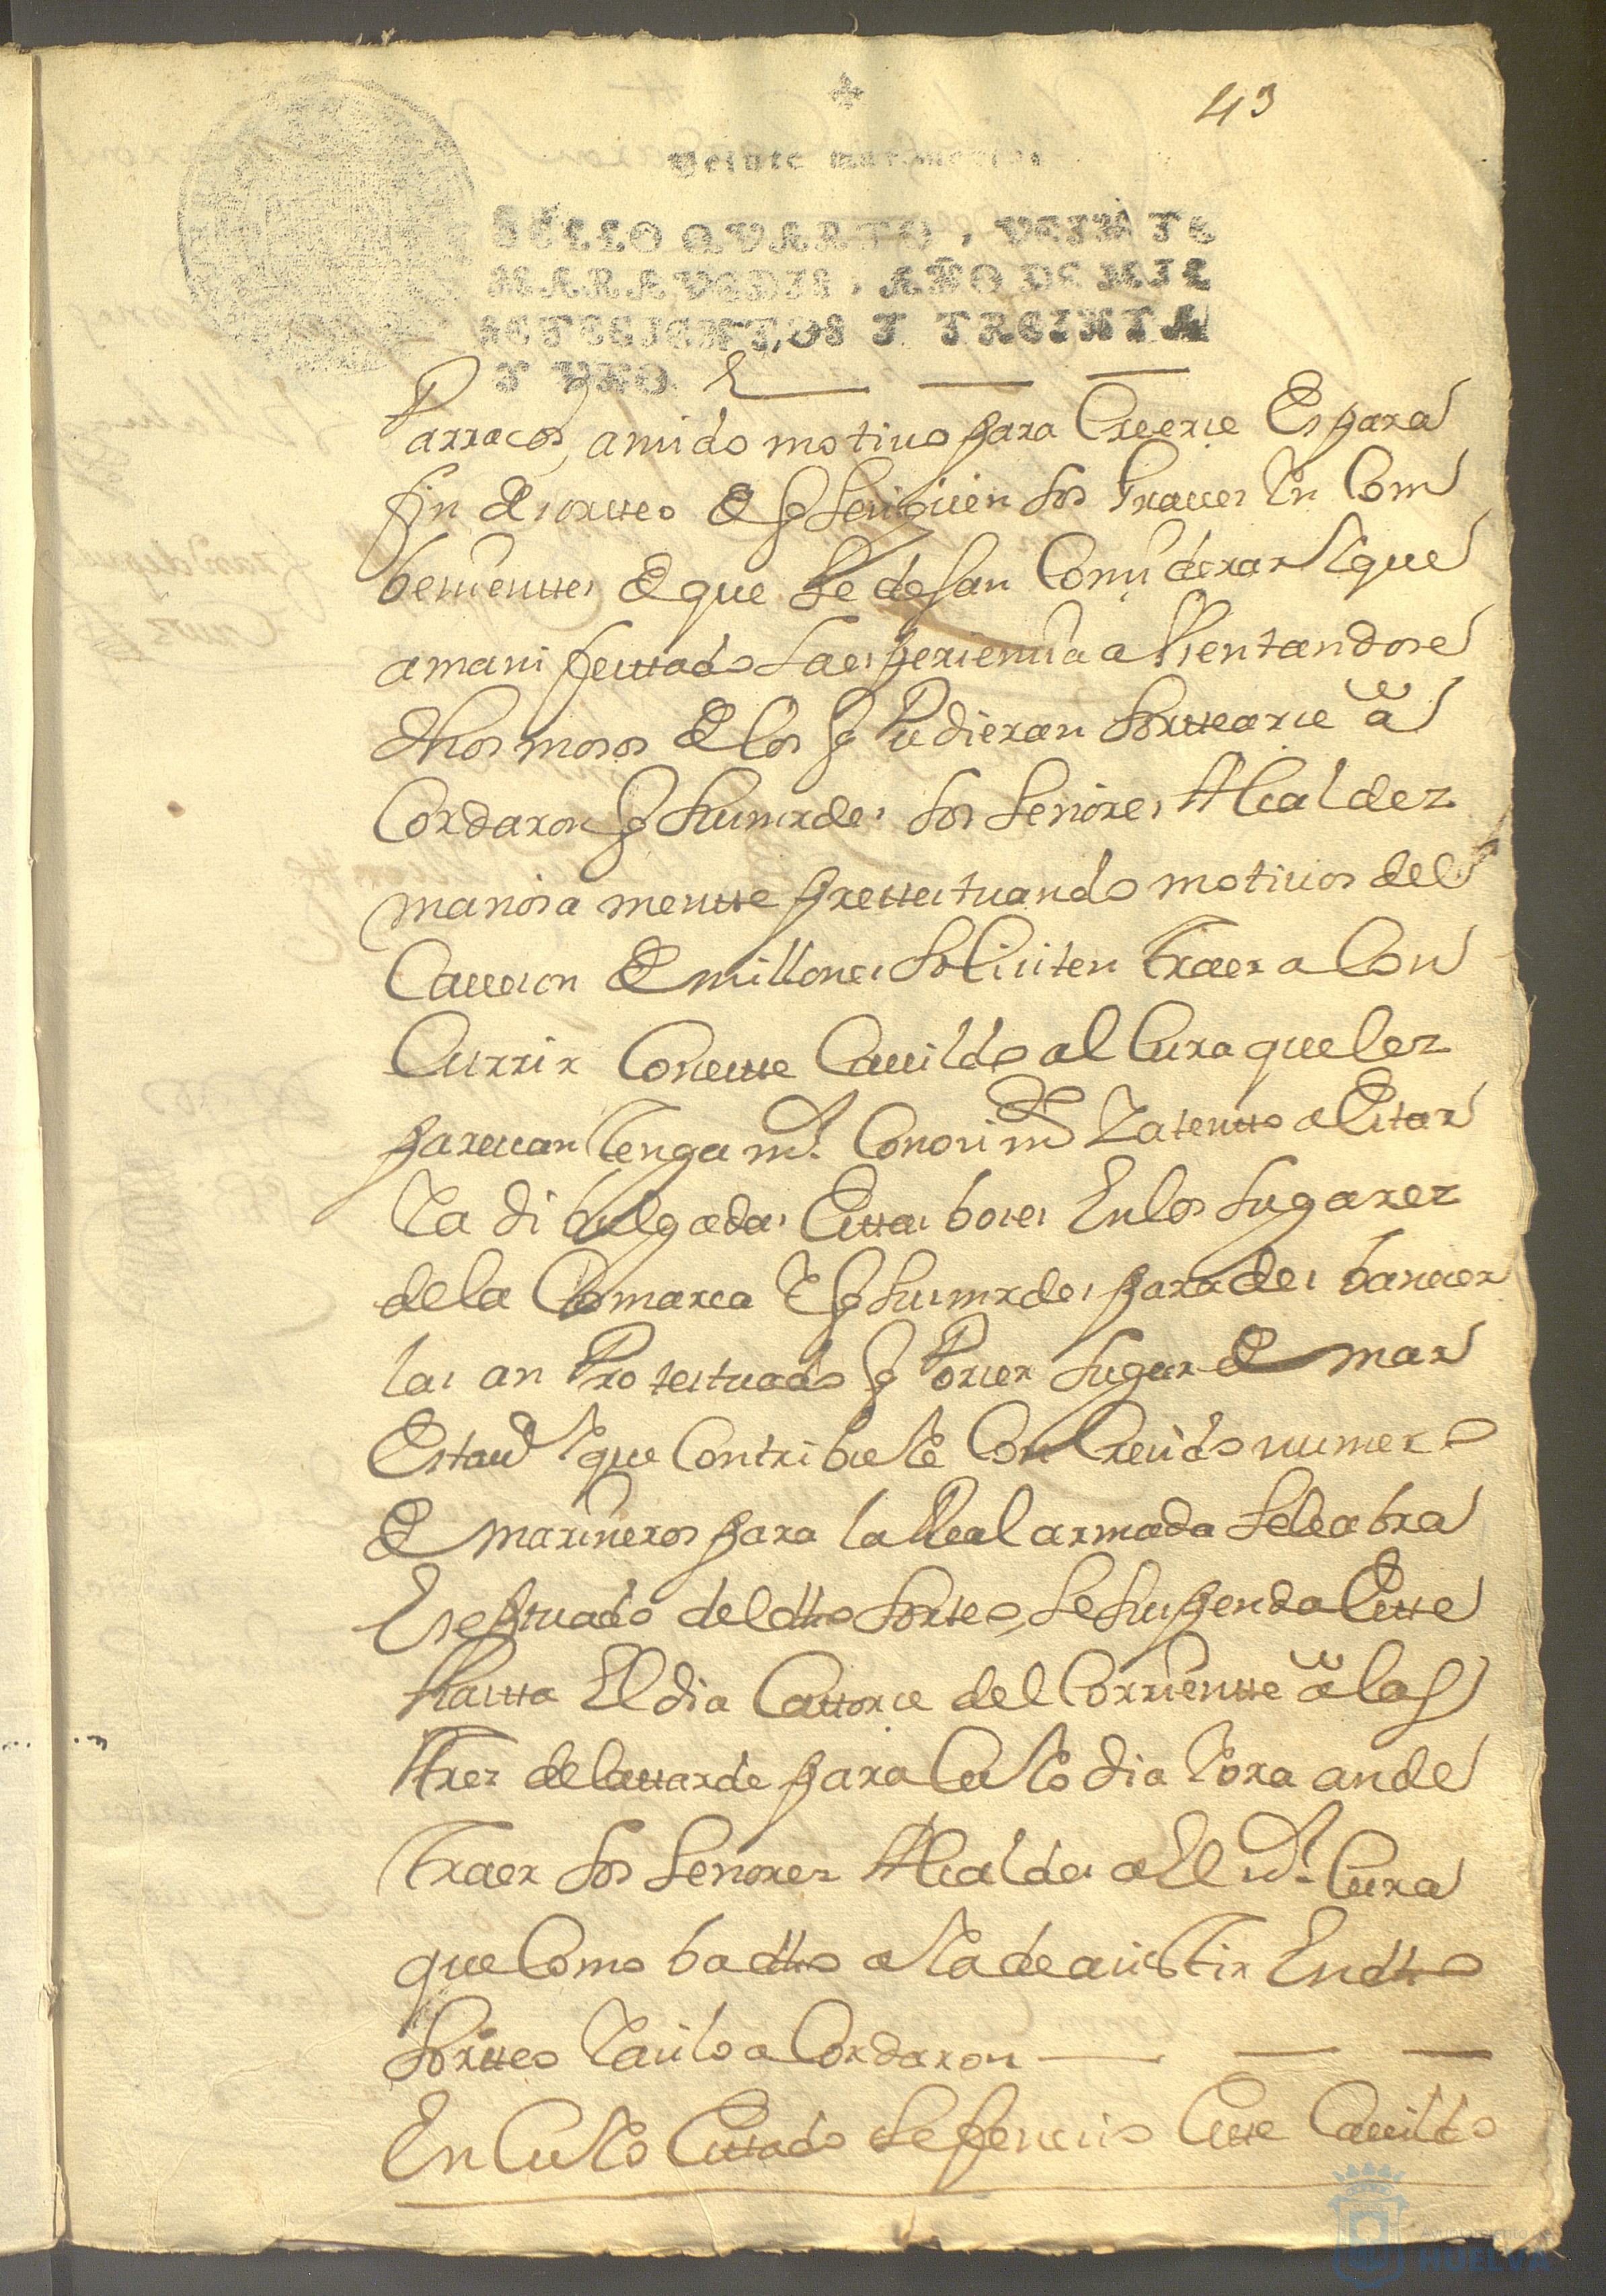 43
Veinte maravedis
SELLO QVARTO, VEINTE
MARAVEDIS, AÑO DE MIL
SETECIENTOS Y TREINTA
Y VNO.
Parracos, a sido motiuo para Creerse Es para
fin de sortteo de q se siguen los Graues In Com
benienttes de que se dejan Considerar i que
a manifesttado la esperiencia ausentandose
dhos mosos de los q Pudieran Sorttearse a
Cordaron q sus mrdes los Señores Alcaldez
manosa mentte prettestuando motiuos del
Caueson de millones soliciten Traer a Con
Currir Con estte Cauildo al Cura que les
parescan Tenga ms. Conosimto. Y atentto a Estar
Ya dibulgadas Esttas boses En los lugares
de la Comarca Y q sus mrdes para desbaneser
las an Protestuado q Por ser lugar de mar
Estaua Y que Contribuie Con Cresido numero
de marineros para la Real armada se le abra
Eseptuado del dho Sortteo, se suspenda Estte
Hastta El dia Cattorse del Corrientte a las
Tres de la ttarde para Cuio dia Y ora an de
Traer los Señores Alcaldes a El Sr. Cura
que Como ba dho a Ya de asistir En dho
Sortteo Y asi lo a Cordaron
En Cuio Esttado se fenecio Estte Cauildo
Ayuntamiento de
HUELVA